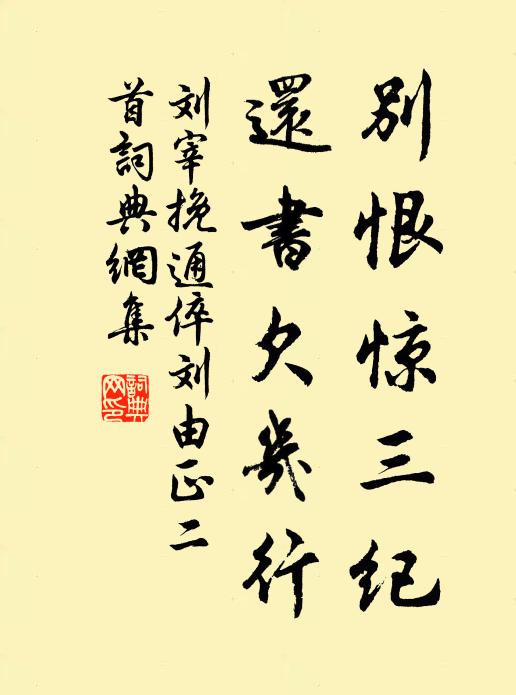 别恨惊三纪
還書欠幾行
刘宰挽通倅刘由正二
首詞典網集
詞典網印